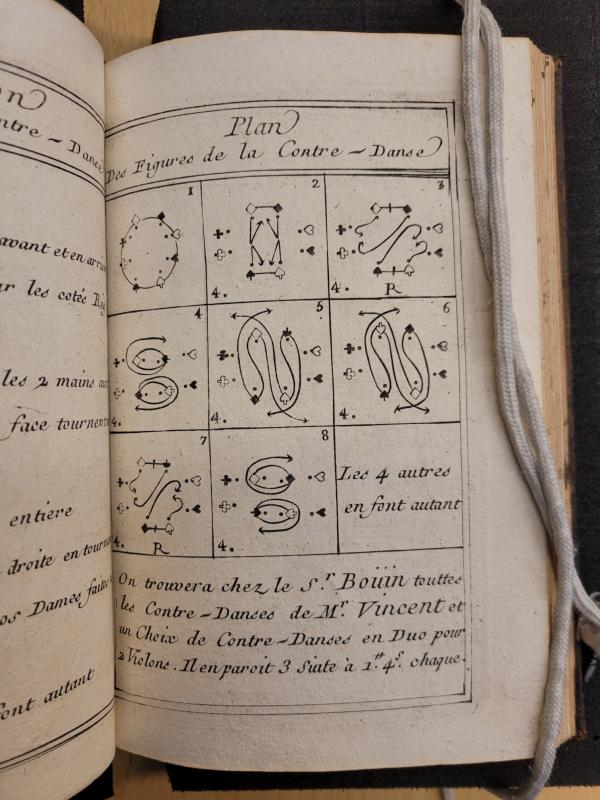 Plan
Des Figures de la Contre-Danse
1
2
4.
3
4. R
4
4.
5
4.
6
4.
7
4. R
8
4.
Les 4 autres
en font autant
On trouvera chez le S.r Boüin touttes
les Contre-Danses de M.r Vincent et
un Choix de Contre-Danses en Duo pour
2 Violons. Il en paroit 3 Suite à 1.tt 4.s chaque.
ntre-Danse
avant et en arri
ur les cotés
les 2 mains
face tournent
entiere
droite en tourn
os Dames faites
font autant